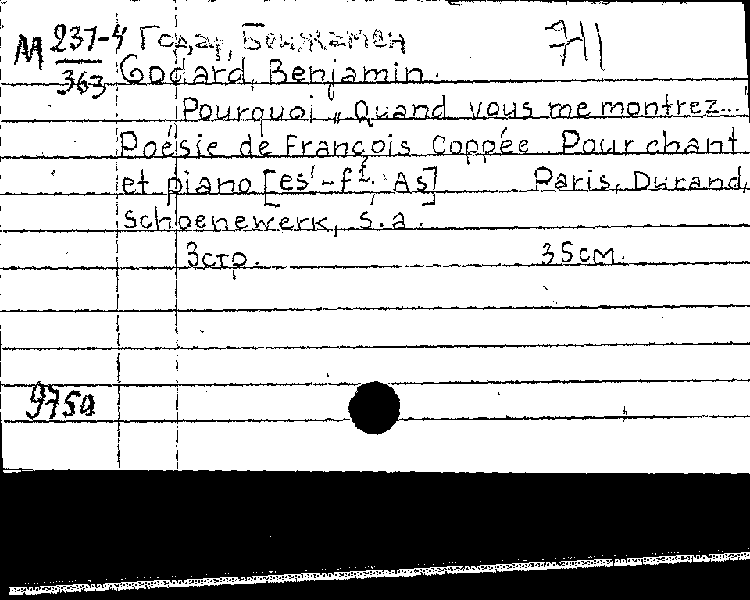 М 237-4 Годар, Бенжамен 711
363 Godard, Benjamin.
Pourquoi „Quand vous me montrez...
Poésie de François Coppée. Pour chant
et piano [es'-f². As] Paris, Durand,
Schoenewerk, s.a.
3стр. 35см.
975а